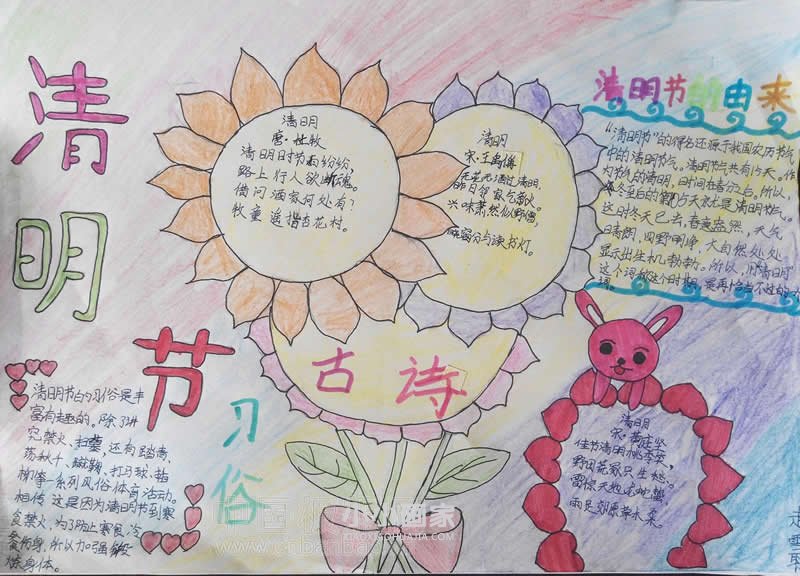 清明
节
习俗
清明节的习俗是丰
富有趣的。除了讲
究禁火、扫墓，还有踏青、
荡秋千、蹴鞠、打马球、插
柳等一系列风俗体育活动。
相传这是因为清明节到寒
食禁火，为了防止寒食冷
餐伤身，所以加强锻
炼身体。
清明
唐·杜牧
清明时节雨纷纷，
路上行人欲断魂。
借问酒家何处有？
牧童遥指杏花村。
清明
宋·王禹偁
无花无酒过清明，
兴味萧然似野僧，
昨日邻家乞新火，
晓窗分与读书灯。
古诗
清明节的由来
"清明节"的得名还源于我国农历节气
中的清明节气。清明节气共有15天。作
为节气的清明，时间在春分之后。所以
冬至后的第 天就是清明节气。
这时冬天已去，春意盎然，天气
清朗，四野明净，大自然处处
显示出生机勃勃。所以，用"清明"
这个词 这个时期，是再恰当不过的
词。
清明
宋·黄庭坚
佳节清明桃李笑，
野田荒冢只生愁。
雷惊天地龙蛇蛰，
雨足郊原草木柔。
小小画家
XIAOXIAOHUAJIA.COM